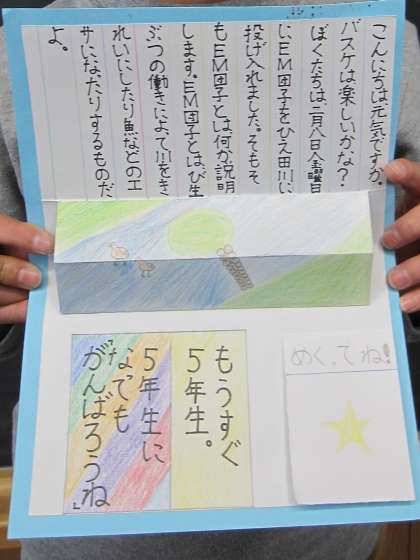 こんにちは元気ですか。
バスケは楽しいかな？
ぼくたちは、二月八日金曜日
に、EM団子をひえ田川に
投げ入れました。そもそ
もEM団子とは何か説明
します。EM団子とはび生
ぶつの働きによって川をき
れいにしたり魚などのエ
サになったりするものだ
よ。
めくってね！
もうすぐ
５年生。
５年生に
なっても
がんばろうね